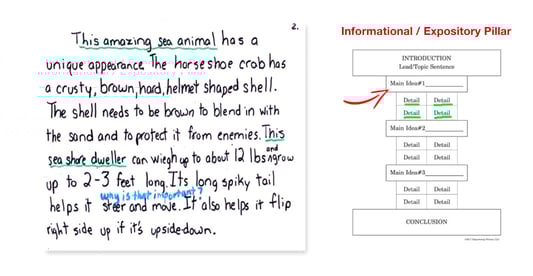 2.
This amazing sea animal has a
unique appearance. The horseshoe crab has
a crusty, brown, hard, helmet shaped shell.
The shell needs to be brown to blend in with
the sand and to protect it from enemies. This
sea shore dweller can wiegh up to about 12 lbs and grow
up to 2-3 feet long. Its long spiky tail
why is that important?
helps it steer and move. It also helps it flip
right side up if it's upside-down.
Informational / Expository Pillar
INTRODUCTION
Lead/Topic Sentence
Main Idea#1
Detail Detail
Detail Detail
Main Idea#2
Detail Detail
Detail Detail
Main Idea#3
Detail Detail
Detail Detail
CONCLUSION